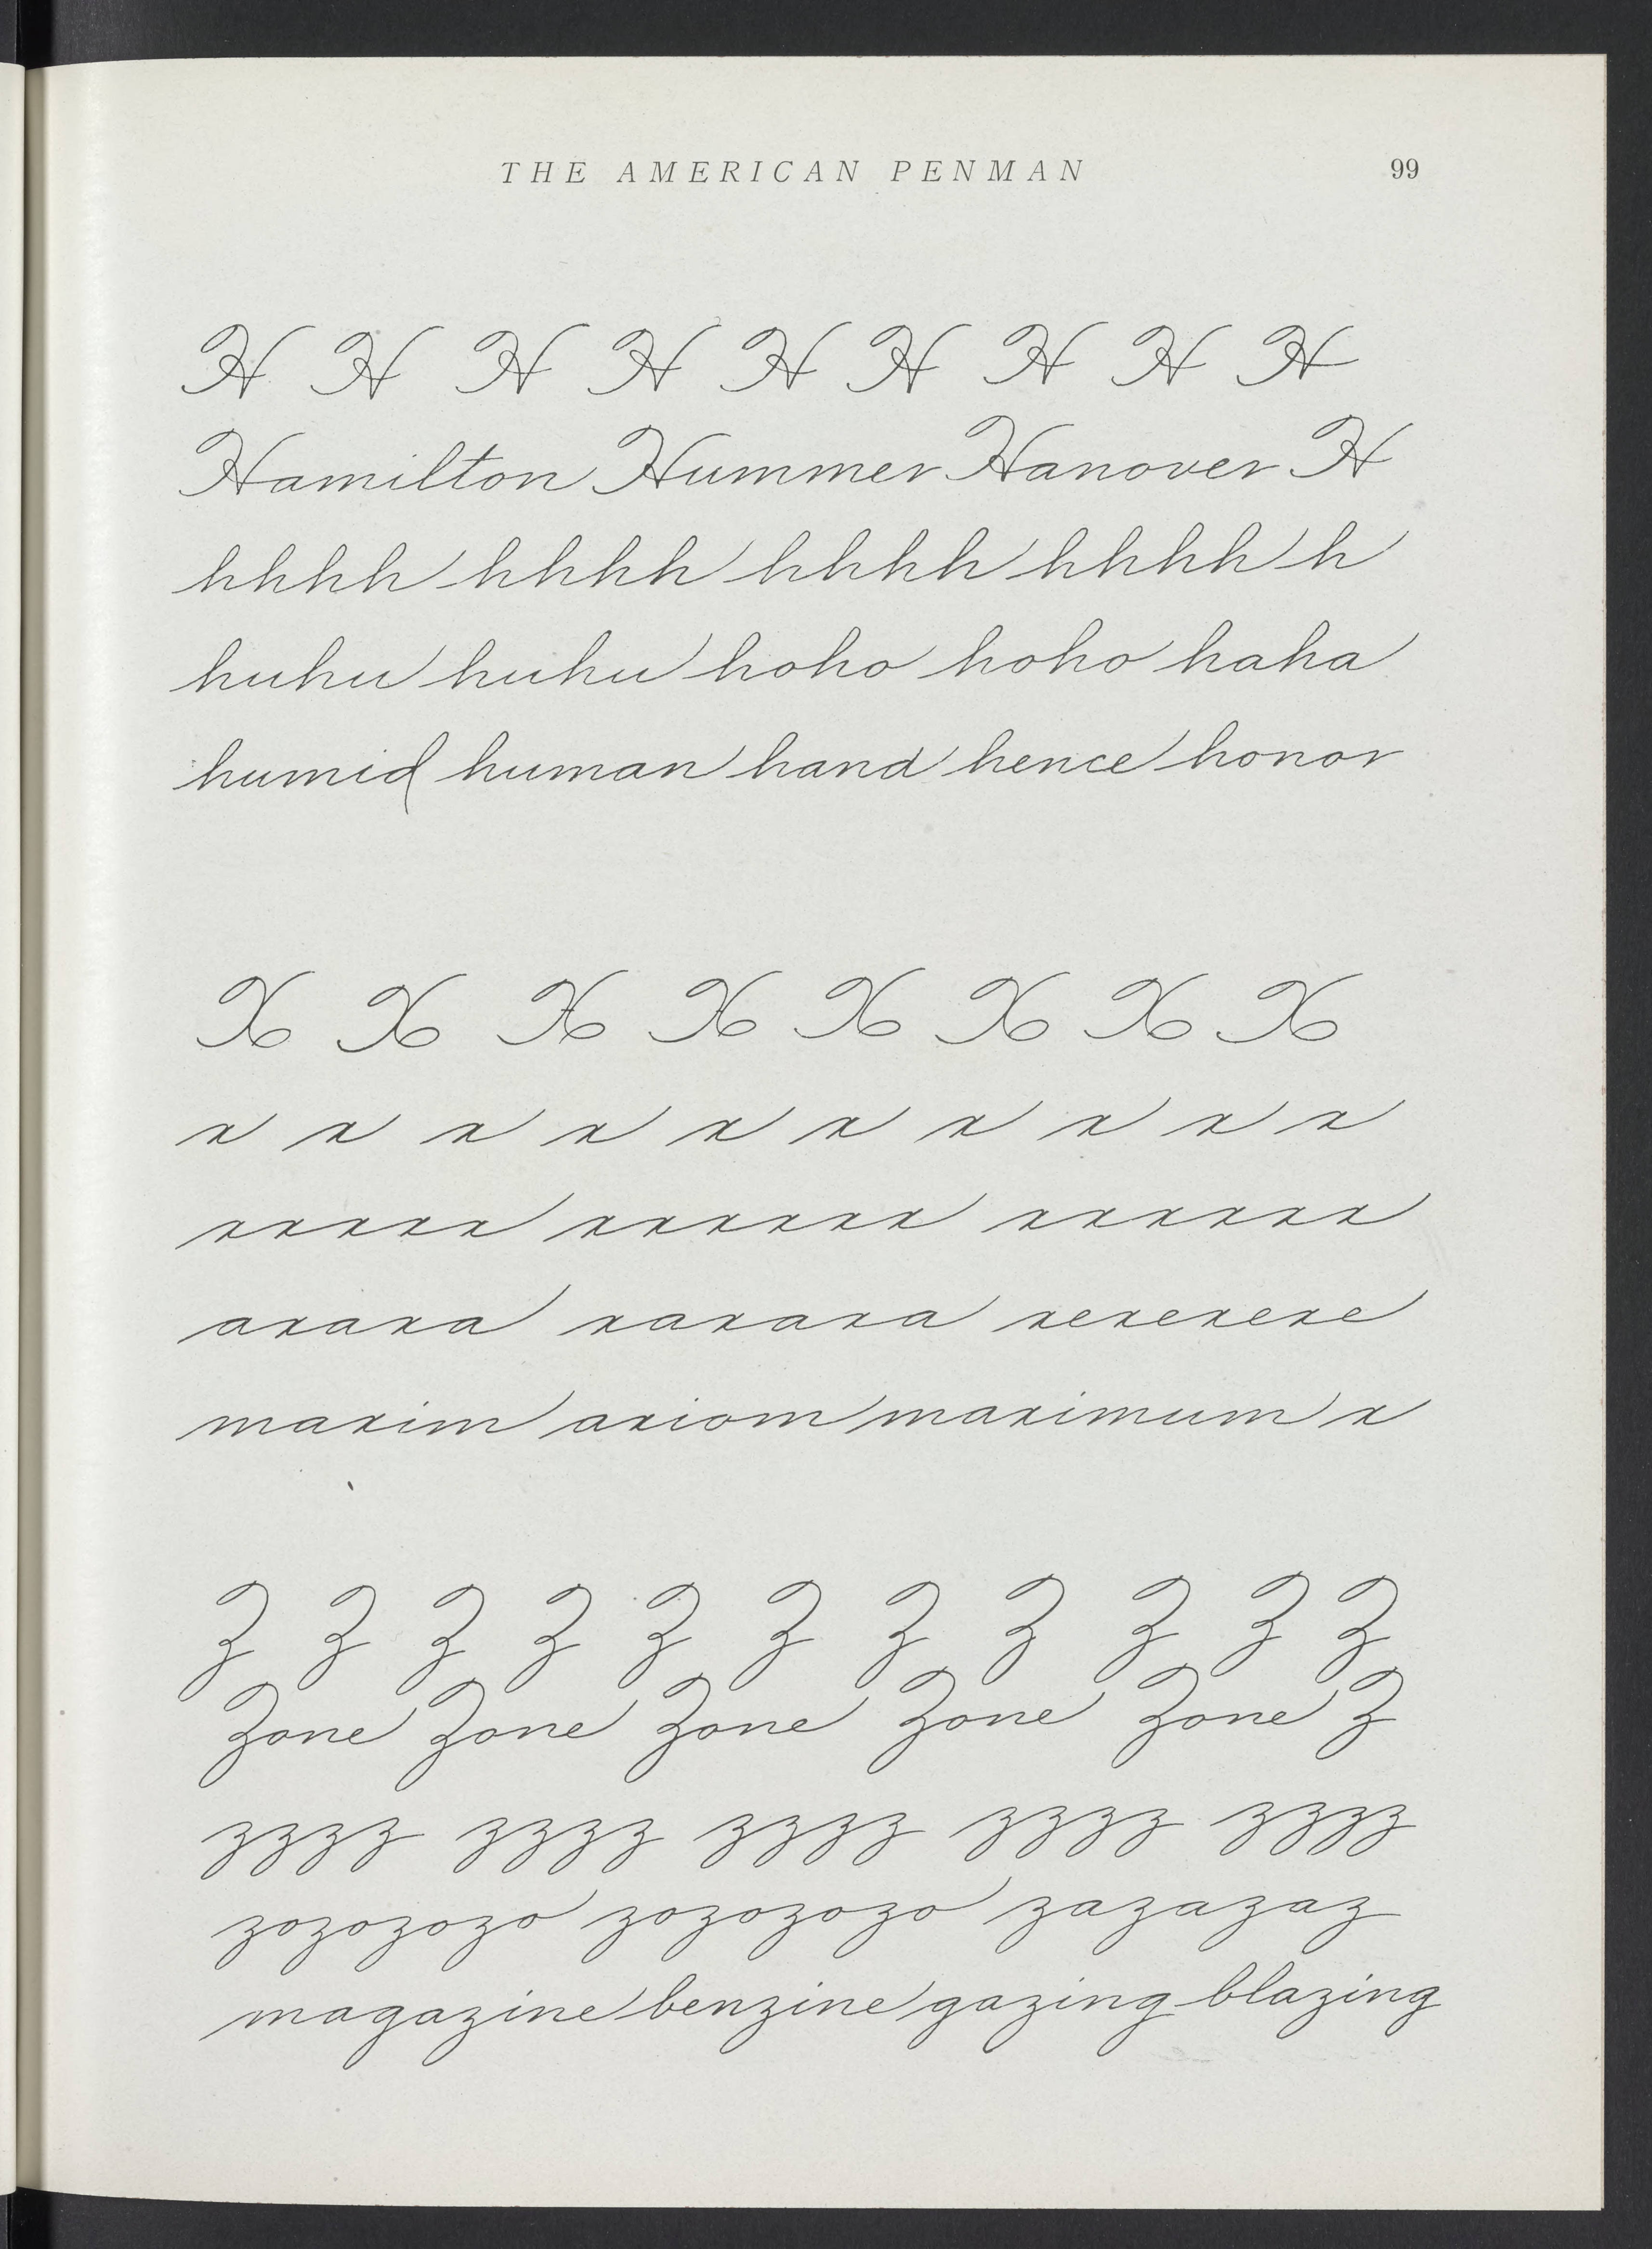 THE AMERICAN PENMAN 99
H H H H H H H H H
Hamilton Hummer Hanover H
hhhh hhhh hhhh hhhh h
huhu huhu hoho hoho haha
humid human hand hence honor
X X X X X X X X
x x x x x x x x x x
xxxxx xxxxxx xxxxxx
axaxa xaxaxa xexexexe
maxim axiom maximum x
Z Z Z Z Z Z Z Z Z Z Z
Zone Zone Zone Zone Zone Z
zzzz zzzz zzzz zzzz zzzz
zozozozo zozozozo zazazaz
magazine benzine gazing blazing